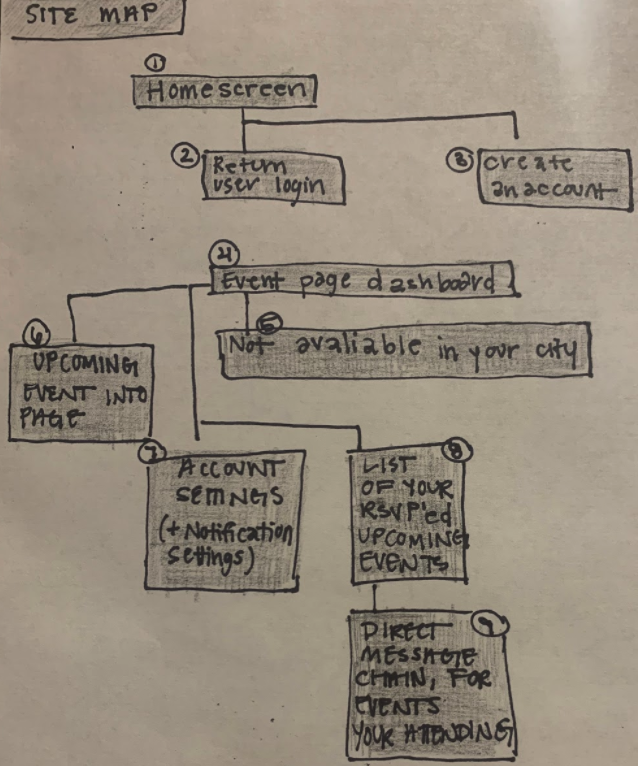 SITE MAP
1
Homescreen
2
Return
user login
3
create
an account
4
Event page dashboard
5
Not avaliable in your city
6
UPCOMING
EVENT INTO
PAGE
7
ACCOUNT
SETTINGS
(+ Notification
Settings)
8
LIST
OF YOUR
RSVP'ed
UPCOMING
EVENTS
9
DIRECT
MESSAGE
CHAIN, FOR
EVENTS
YOUR ATTENDING